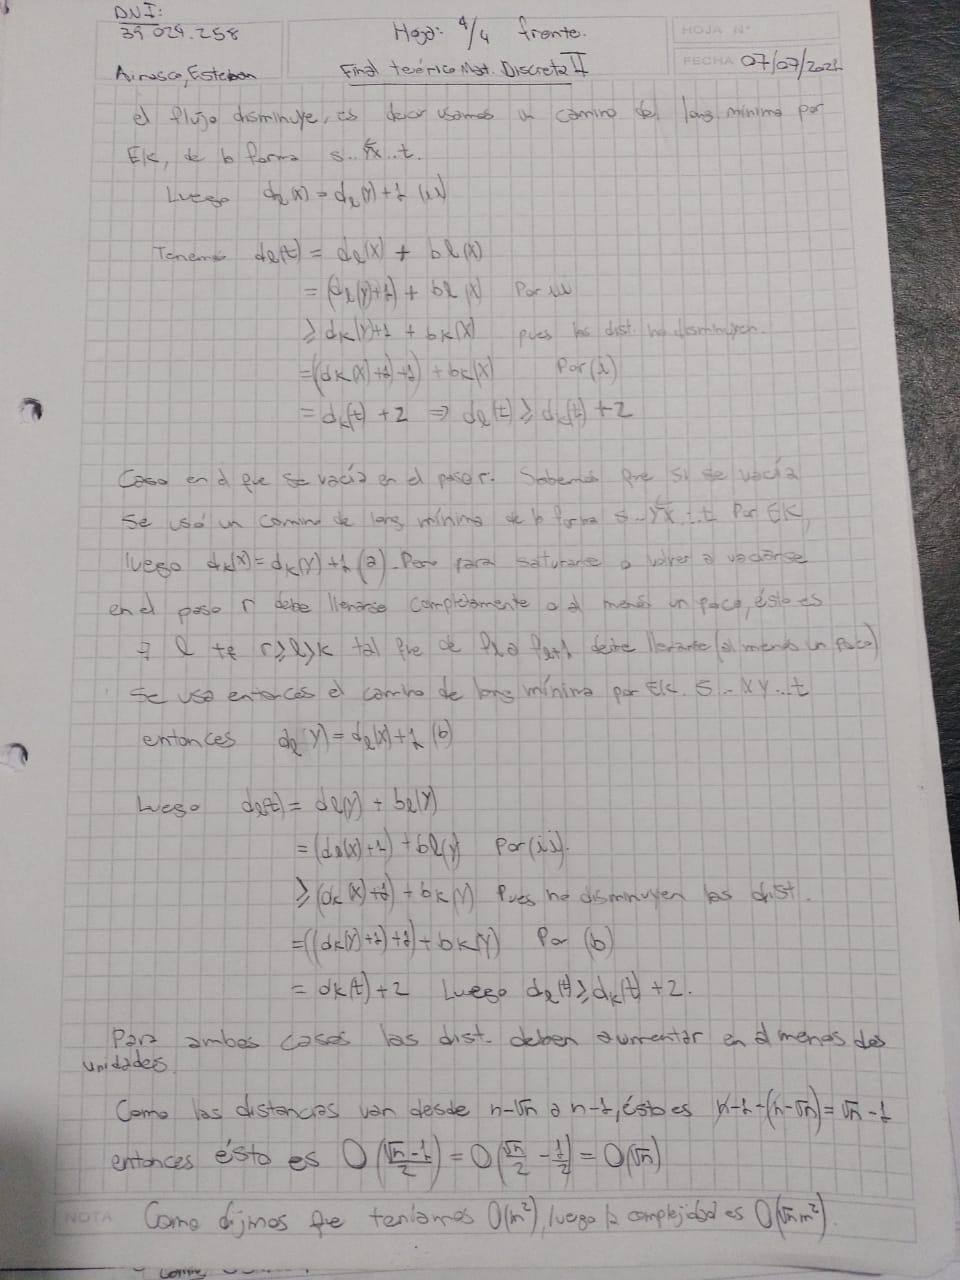 DNI:
39 029.258
Hoja: 4/4 frente.
HOJA N°
Airasca, Esteban
Final teórico Mat. Discreta II
FECHA 07/07/2021
el flujo disminuye, es decir usamos un camino de long mínima por
EK, de la forma s..yx..t.
Luego dl(x) = dl(y)+1 (ii)
Tenemos dl(t) = dl(x) + bl(x)
= (dl(y)+1) + bl(x) Por ii
≥ dk(y)+1 + bk(x) pues las dist. no disminuyen.
= (dk(x)+1)+1) + bk(x) Por (i)
= dk(t) + 2 ⇒ dl(t) ≥ dk(t) + 2
Caso en el que se vacía en el paso r. Sabemos que si se vacía
se usó un camino de long mínima de la forma s..yx..t Por EK,
luego dk(x) = dk(y)+1 (a). Pero para saturarse o volver a vaciarse
en el paso r debe llenarse completamente o al menos un poco, ésto es
∃ l tq r≥l>k tal que de fl a fl+1 debe llenarse (al menos un poco)
Se usa entonces el camino de long mínima por EK. s..xy..t
entonces dl(y) = dl(x)+1 (b)
Luego dl(t) = dl(y) + bl(y)
= (dl(x)+1) + bl(y) Por (ii).
≥ (dk(x)+1) + bk(y) Pues no disminuyen las dist.
= ((dk(y)+1)+1) + bk(y) Por (b)
= dk(t) + 2 Luego dl(t) ≥ dk(t) + 2.
Para ambos casos las dist. deben aumentar en al menos dos
unidades.
Como las distancias van desde n-√n a n-1, ésto es n-1-(n-√n) = √n - 1
entonces ésto es O(√n-1/2) = O(√n/2 - 1/2) = O(√n)
NOTA Como dijimos que teníamos O(m²), luego la complejidad es O(√n m²).